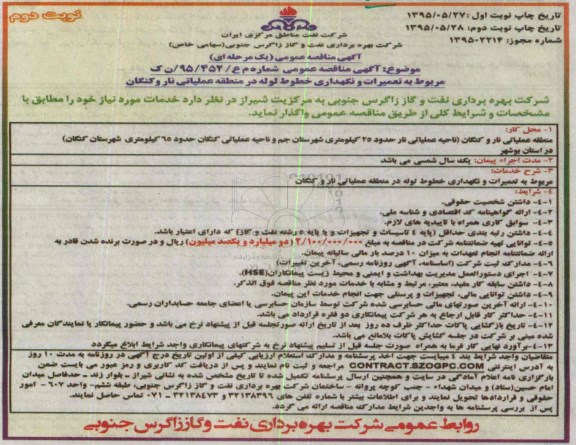 نوبت دوم
تاریخ چاپ نوبت اول :۱۳۹۵/۰۵/۲۷
تاریخ چاپ نوبت دوم: ۱۳۹۵/۰۵/۲۸
شماره مجوز: ۱۳۹۵-۲۲۱۴
شرکت نفت مناطق مرکزی ایران
شرکت بهره برداری نفت و گاز زاگرس جنوبی(سهامی خاص)
آگهی مناقصه عمومی (یک مرحله ای)
موضوع: آگهی مناقصه عمومی شماره م ع/ ۹۵/۴۵۲/ن ک
مربوط به تعمیرات و نگهداری خطوط لوله در منطقه عملیاتی نار وکنگان
شرکت بهره برداری نفت و گاز زاگرس جنوبی به مرکزیت شیراز در نظر دارد خدمات مورد نیاز خود را مطابق با
مشخصات و شرایط کلی از طریق مناقصه عمومی واگذار نماید.
۱- محل کار:
منطقه عملیاتی نار و کنگان (ناحیه عملیاتی نار حدود ۲۵ کیلومتری شهرستان جم و ناحیه عملیاتی کنگان حدود ۶۵ کیلومتری شهرستان کنگان)
در استان بوشهر
۲- مدت اجراء پیمان: یک سال شمسی می باشد
۳- شرح خدمات:
مربوط به تعمیرات و نگهداری خطوط لوله در منطقه عملیاتی نار و کنگان
۴- شرایط:
۴-۱- داشتن شخصیت حقوقی.
۴-۲- ارائه گواهینامه کد اقتصادی و شناسه ملی.
۴-۳- سوابق کاری همراه با تاییدیه های لازم.
۴-۴- داشتن رتبه بندی حداقل (پایه ۴ تاسیسات و تجهیزات و یا پایه ۵ رشته نفت و گاز) که دارای اعتبار باشد.
۴-۵- توانایی تهیه ضمانتنامه شرکت در مناقصه به مبلغ ۲/۱۰۰/۰۰۰/۰۰۰ (دو میلیارد و یکصد میلیون) ریال و در صورت برنده شدن قادر به
ارائه ضمانتنامه انجام تعهدات به میزان ۱۰ درصد بار مالی سالیانه پیمان.
۴-۶- مدارک ثبت شرکت (اساسنامه، آگهی روزنامه رسمی، آخرین تغییرات)
۴-۷- اجرای دستورالعمل مدیریت بهداشت و ایمنی و محیط زیست پیمانکاران(HSE).
۴-۸- داشتن سابقه کار مفید، معتبر، مرتبط و مشابه با خدمات مورد نظر مناقصه فوق الذکر.
۴-۹- داشتن توانایی مالی، تجهیزات و پرسنلی جهت انجام خدمات این پیمان.
۴-۱۰- ارائه آخرین صورتهای مالی حسابرسی شده شرکت توسط سازمان حسابرسی یا اعضای جامعه حسابداران رسمی.
۴-۱۱- حداکثر کار قابل ارجاع به هر شرکت پیمانکاری دو فقره قرارداد می باشد.
۴-۱۲- تاریخ بازگشایی پاکات حداکثر ظرف ده روز بعد از تاریخ ارائه صورتجلسه قبل از پیشنهاد نرخ می باشد و حضور پیمانکار یا نمایندگان معرفی
شده مبنی بر شرکت در جلسه گشایش پاکات بلامانع می باشد.
۴-۱۳- برآورد نهایی کار فرما به همراه صورت جلسه قبل از تسلیم پیشنهاد نرخ به شرکتهای پیمانکاری واجد شرایط ابلاغ میگردد
متقاضیان واجد شرایط بند ۴ میبایست جهت اخذ پرسشنامه و مدارک استعلام ارزیابی کیفی از اولین تاریخ درج آگهی در روزنامه به مدت ۱۰ روز
به آدرس اینترنتی CONTRACT.SZOGPC.COM مراجعه و ثبت نام نمایند و پس از دریافت کد کاربری و رمز عبور می بایست ضمن
بارگزاری نامه اعلام آمادگی در سایت و همچنین ارسال پرسشنامه تکمیل شده تا تاریخ مشخص شده به نشانی شیراز ـ بلوار زند ـ حدفاصل میدان
امام حسین(ستاد) و میدان شهداء - جنب کوچه پروانه - ساختمان شرکت بهره برداری نفت و گاز زاگرس جنوبی، طبقه ششم- واحد ۶۰۷ - امور
حقوقی و قراردادها تحویل نمایند و برای اطلاعات بیشتر با شماره تلفن های ۳۲۱۳۸۳۹۶ و ۳۲۱۳۸۴۷۳ - ۰۷۱ تماس حاصل نمایند.
پس از بررسی پرسشنامه ها به واجدین شرایط مدارک مناقصه ارائه می گردد.
روابط عمومی شرکت بهره برداری نفت و گاز زاگرس جنوبی